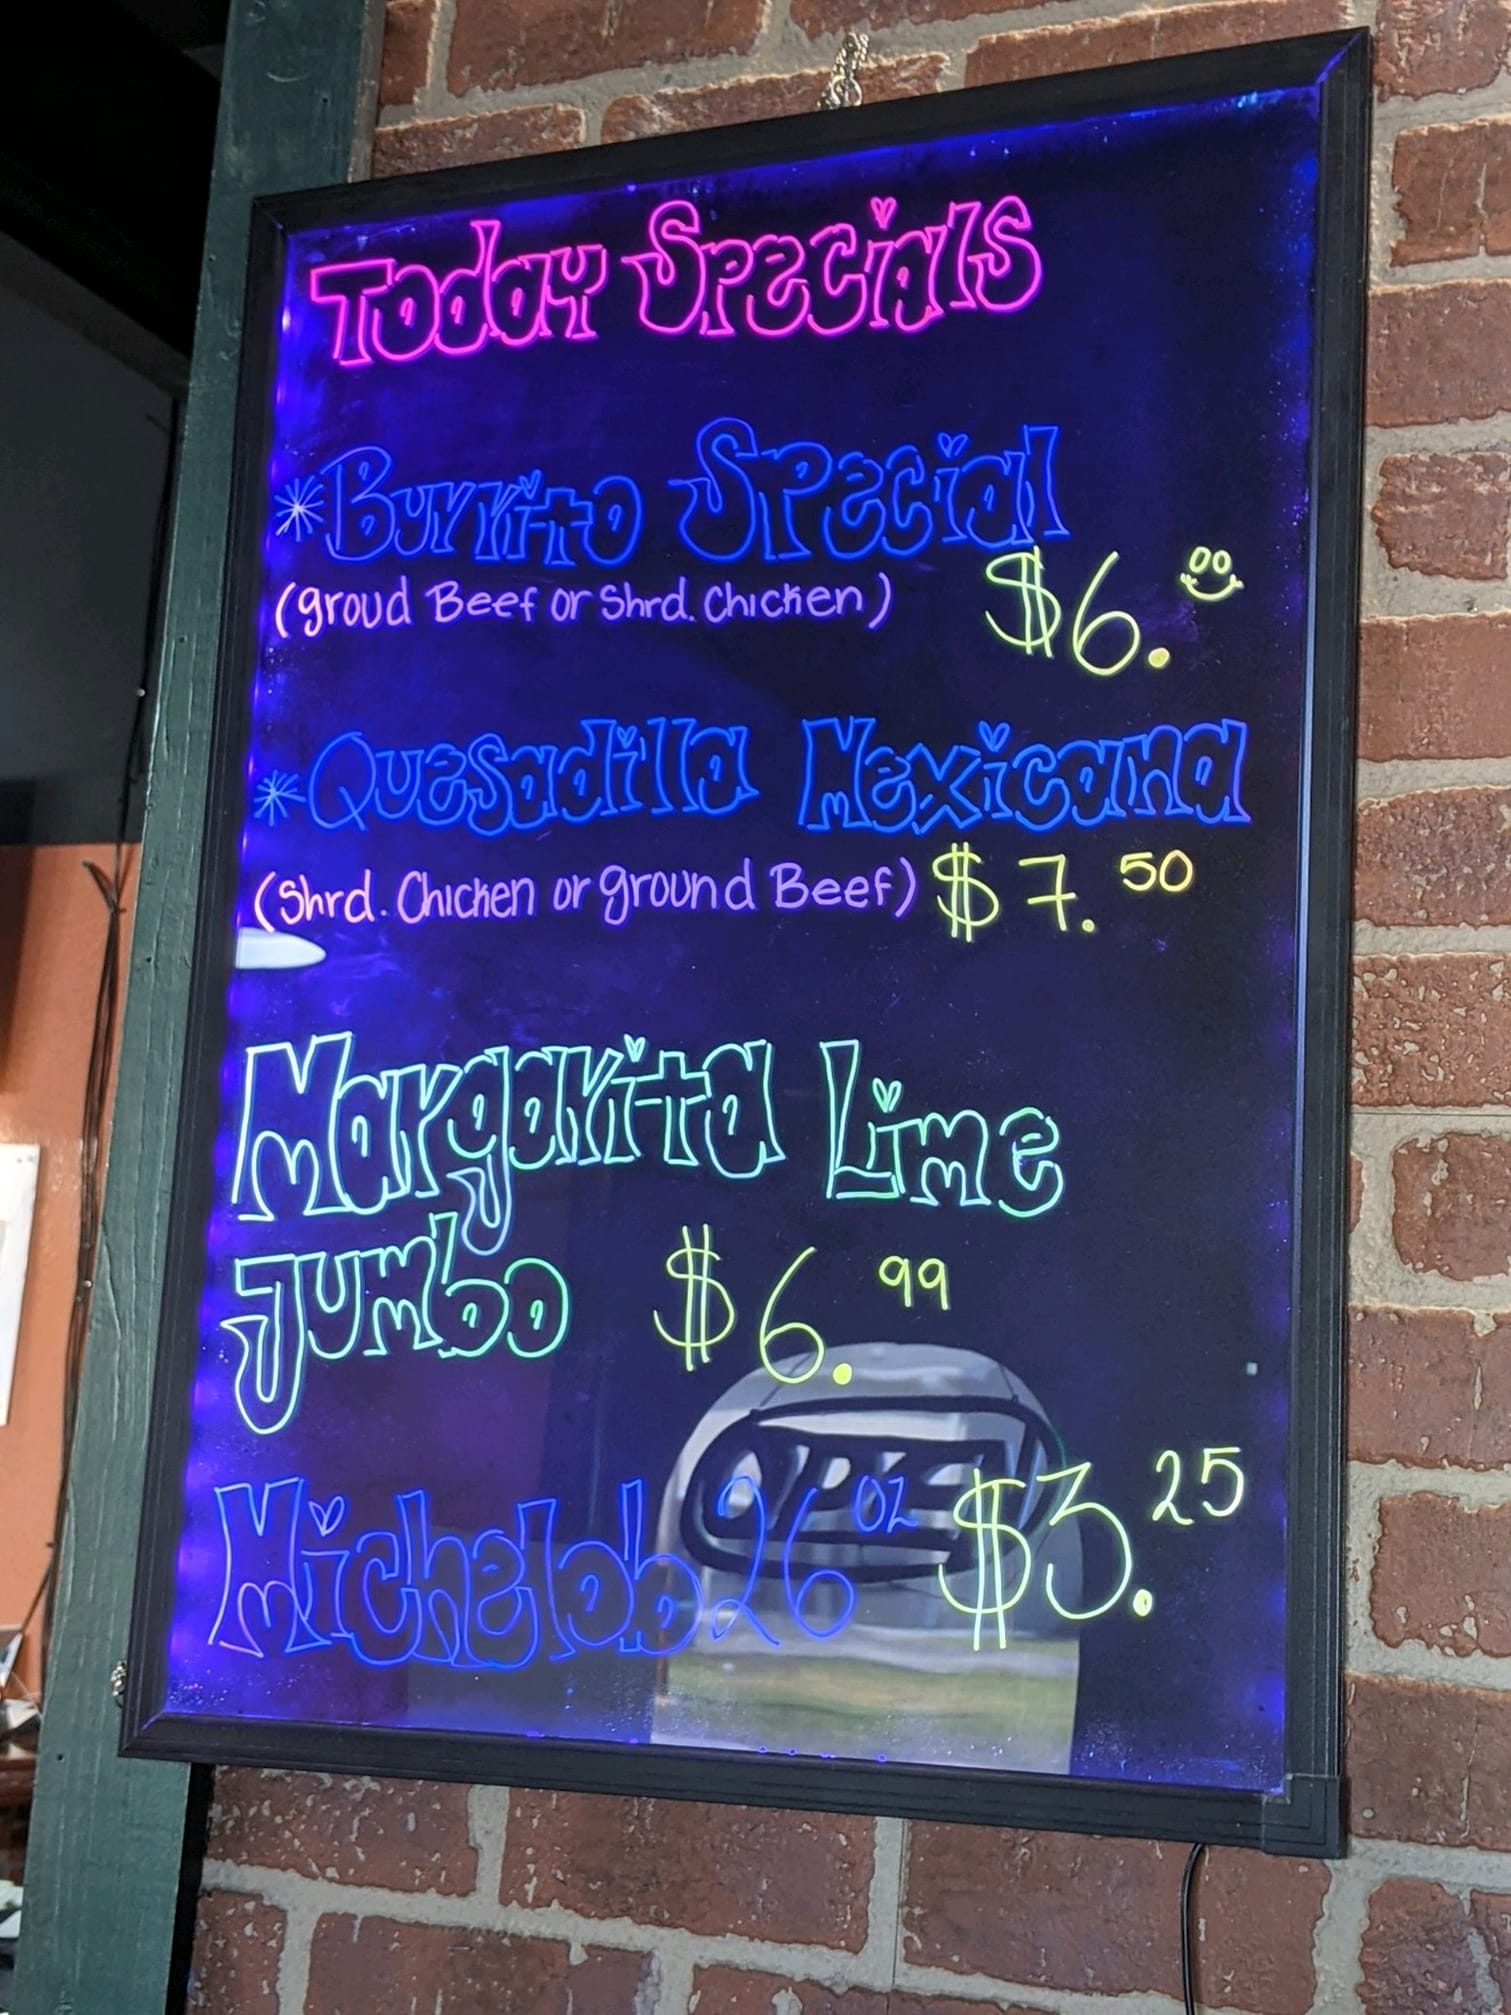 Today Specials
*Burrito Special
(groud Beef or Shrd. Chicken) $6.00
*Quesadilla Mexicana
(Shrd. Chicken or ground Beef) $7.50
Margarita Lime
Jumbo $6.99
Michelob 26 oz $3.25
OPEN